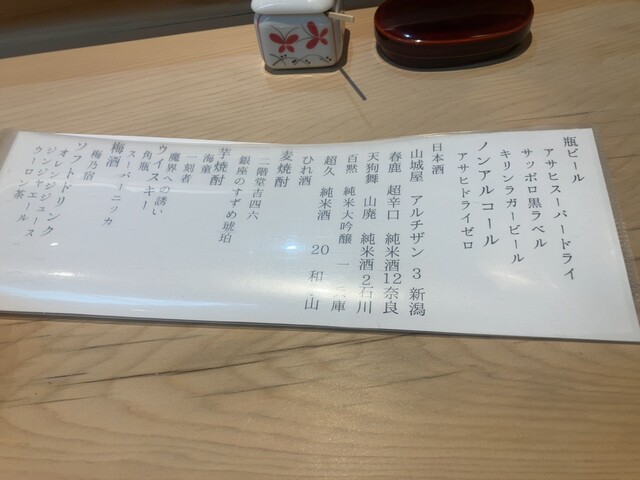 瓶ビール
アサヒスーパードライ
サッポロ黒ラベル
キリンラガービール
ノンアルコール
アサヒドライゼロ
日本酒
山城屋 アルチザン 3 新潟
春鹿 超辛口 純米酒12奈良
天狗舞 山廃 純米酒2石川
百黙 純米大吟醸 一 庫
超久 純米酒 20 和 山
ひれ酒
麦焼酎
二階堂吉四六
銀座のすずめ琥珀
芋焼酎
海童
一刻者
魔界への誘い
ウィスキー
角瓶
スーパーニッカ
梅酒
梅乃宿
ソフトドリンク
オレンジジュース
ジンジャエール
ウーロン茶